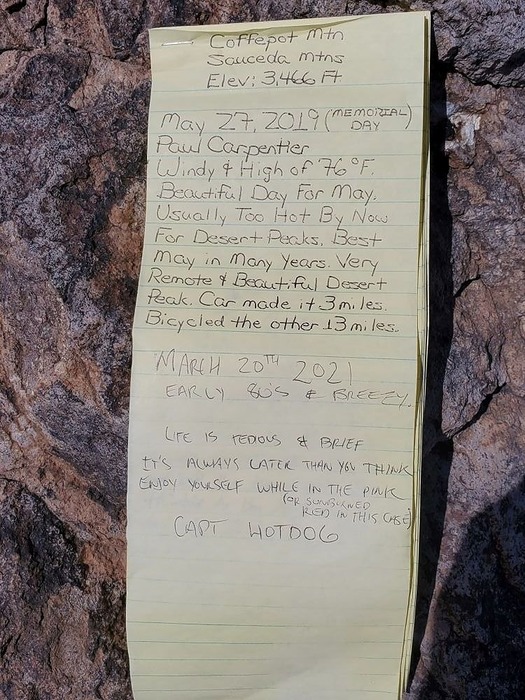 Coffepot Mtn
Sauceda Mtns
Elev: 3,466 Ft
May 27, 2019 (MEMORIAL DAY)
Paul Carpentier
Windy & High of 76°F.
Beautiful Day For May.
Usually Too Hot By Now
For Desert Peaks. Best
May in Many Years. Very
Remote & Beautiful Desert
Peak. Car made it 3 miles.
Bicycled the other 13 miles.
MARCH 20TH 2021
EARLY 80'S & BREEZY.
LIFE IS TEDIOUS & BRIEF
IT'S ALWAYS LATER THAN YOU THINK
ENJOY YOURSELF WHILE IN THE PINK
(OR SUNBURNED
RED IN THIS CASE)
CAPT HOTDOG